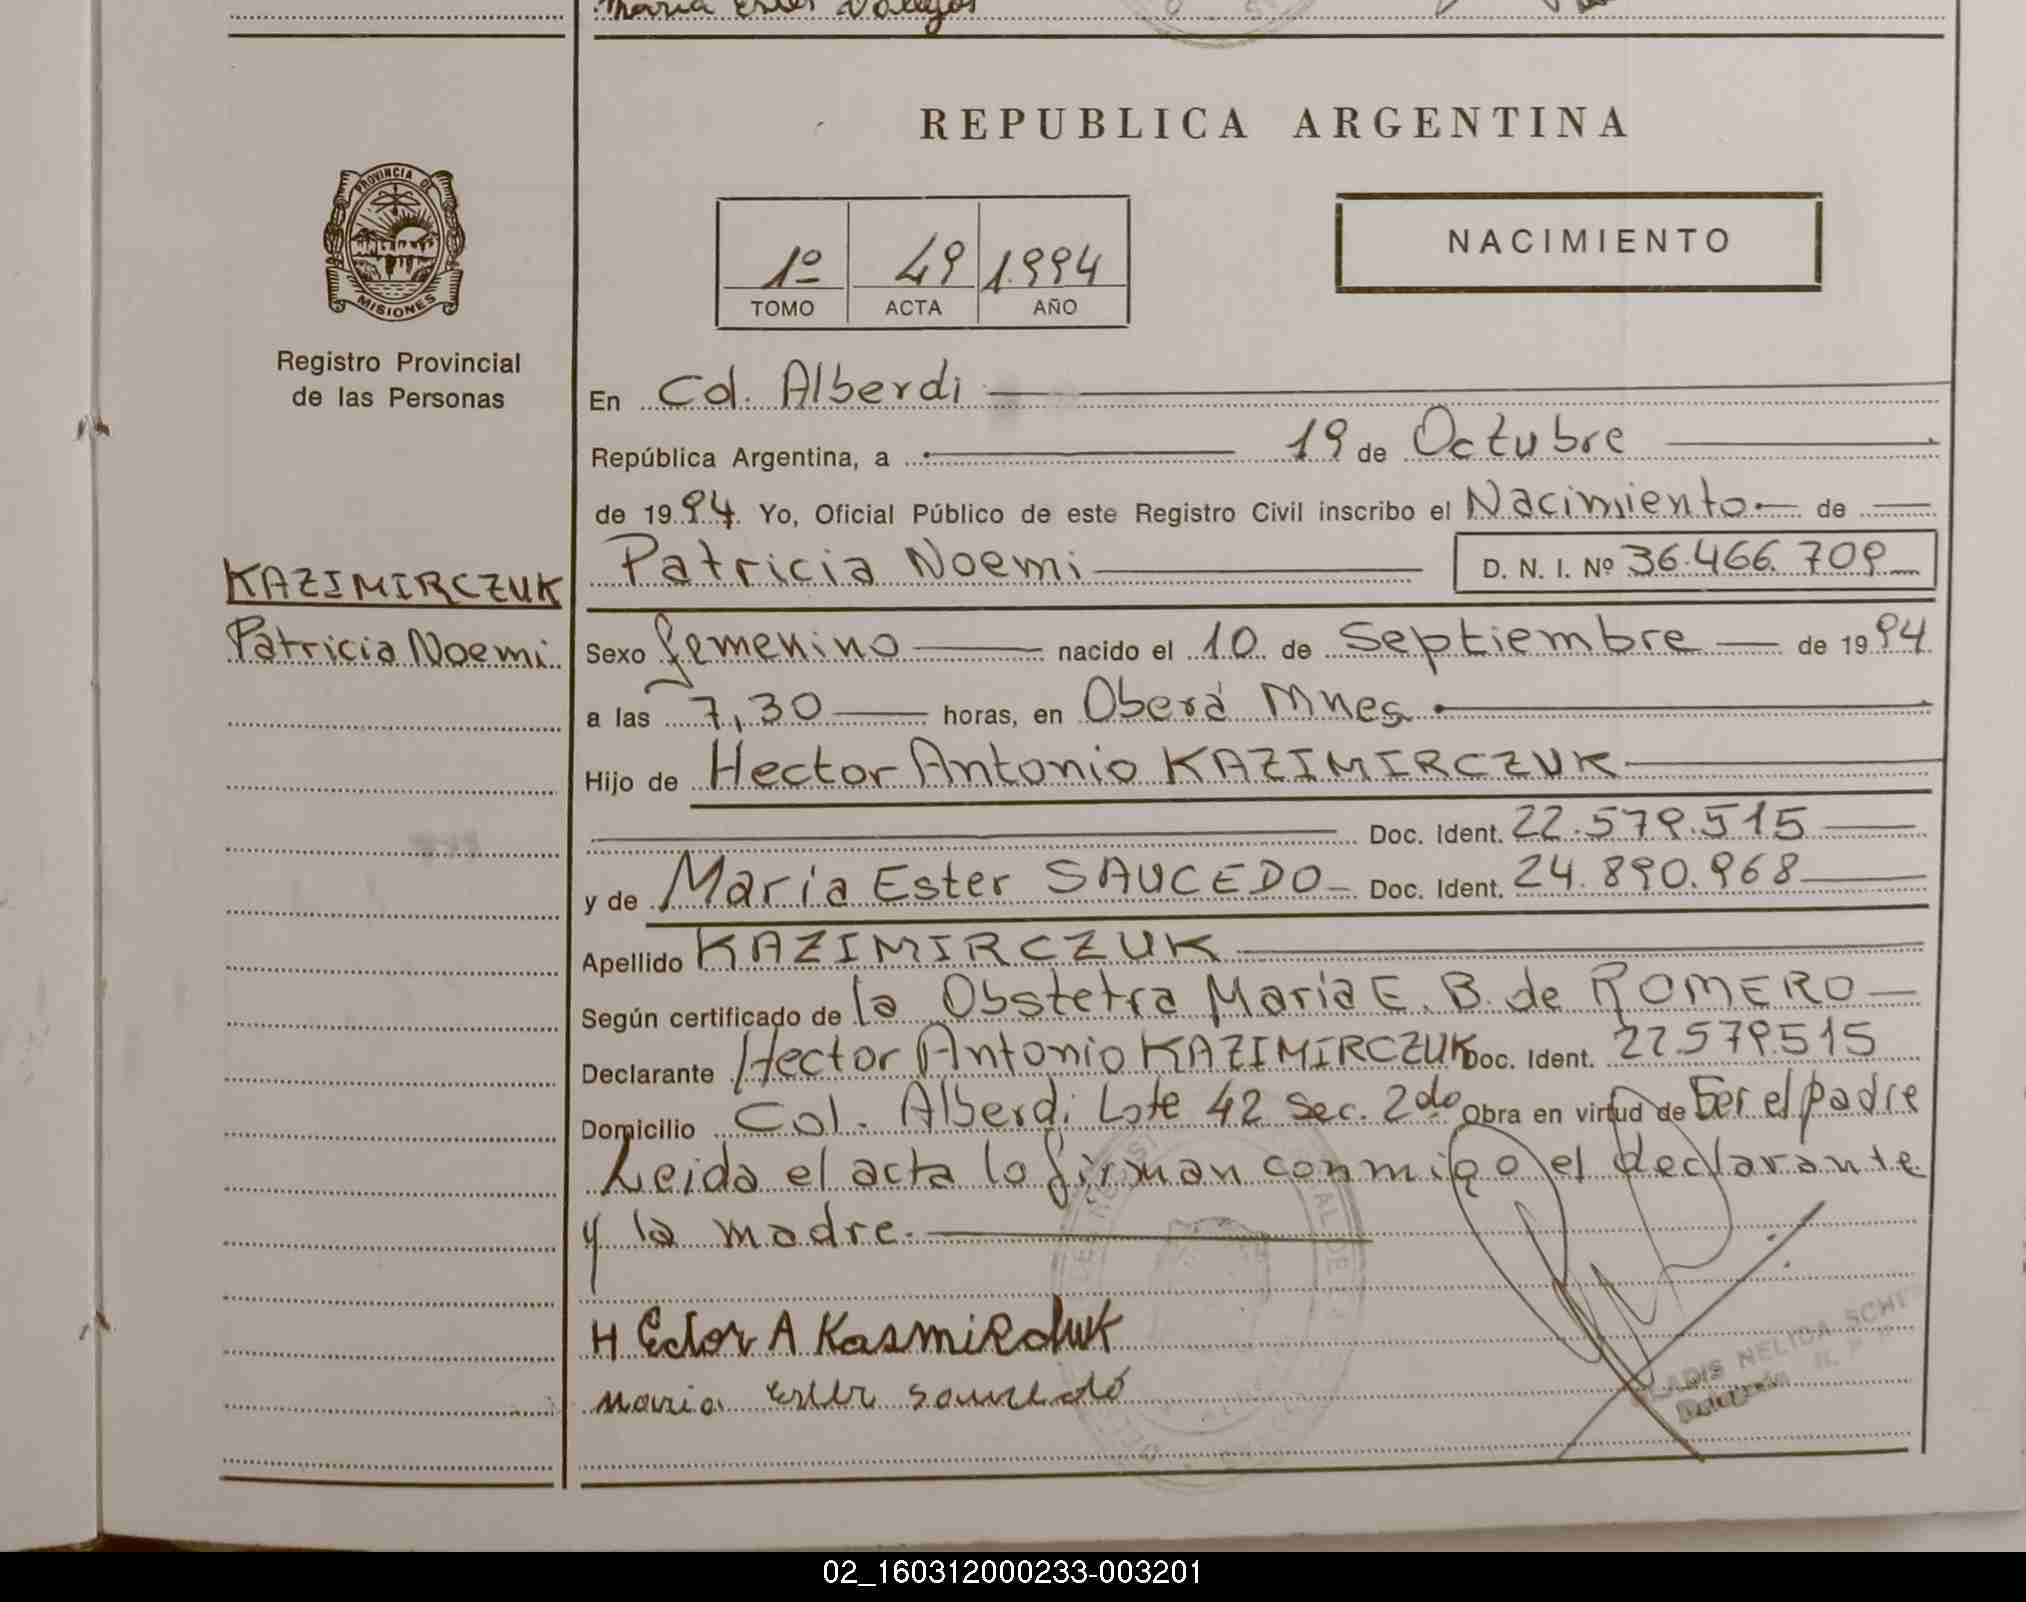 Maria Ester Vallejos
REPUBLICA ARGENTINA
PROVINCIA DE
MISIONES
Registro Provincial
de las Personas
1º 49 1.994
TOMO ACTA AÑO
NACIMIENTO
En Col. Alberdi
República Argentina, a 19 de Octubre
de 1994. Yo, Oficial Público de este Registro Civil inscribo el Nacimiento de
Patricia Noemi D. N. I. Nº 36.466.709
KAZIMIRCZUK
Patricia Noemi
Sexo femenino nacido el 10 de Septiembre de 1994
a las 7,30 horas, en Oberá Mnes
Hijo de Hector Antonio KAZIMIRCZUK
Doc. Ident. 22.579.515
y de Maria Ester SAUCEDO Doc. Ident. 24.890.968
Apellido KAZIMIRCZUK
Según certificado de la Obstetra Maria E. B. de ROMERO
Declarante Hector Antonio KAZIMIRCZUK Doc. Ident. 22.579.515
Domicilio Col. Alberdi Lote 42 Sec. 2do Obra en virtud de Ser el padre
Leida el acta lo firman conmigo el declarante
y la madre.
HEctor A Kasmirchuk
Maria Ester Saucedo
NELIDA
02_160312000233-003201